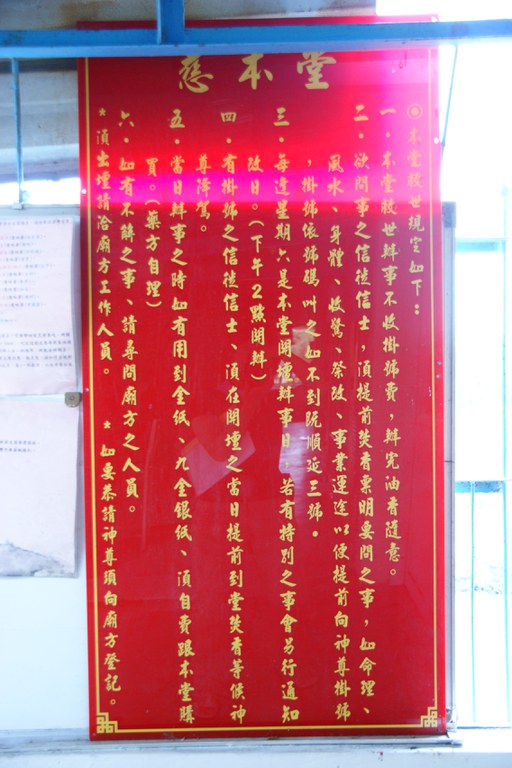 慈本堂
◎本堂救世規定如下：
一．本堂救世辦事不收掛號費，辦完油香隨意。
二．欲問事之信徒信士，須提前焚香稟明要問之事，如命理、
風水、身體、收驚、祭改、事業運途以便提前向神尊掛號
，掛號依號碼叫之如不到阮順延三號。
三．每逢星期六是本堂開壇辦事日，若有特別之事會另行通知
改日。（下午2點開辦）
四．有掛號之信徒信士、須在開壇之當日提前到堂焚香等候神
尊降駕。
五．當日辦事之時如有用到金紙、九金銀紙、須自費跟本堂購
買。（藥方自理）
六．如有不解之事、請尋問廟方之人員。
＊須出壇請洽廟方工作人員。 ＊如要恭請神尊須向廟方登記。